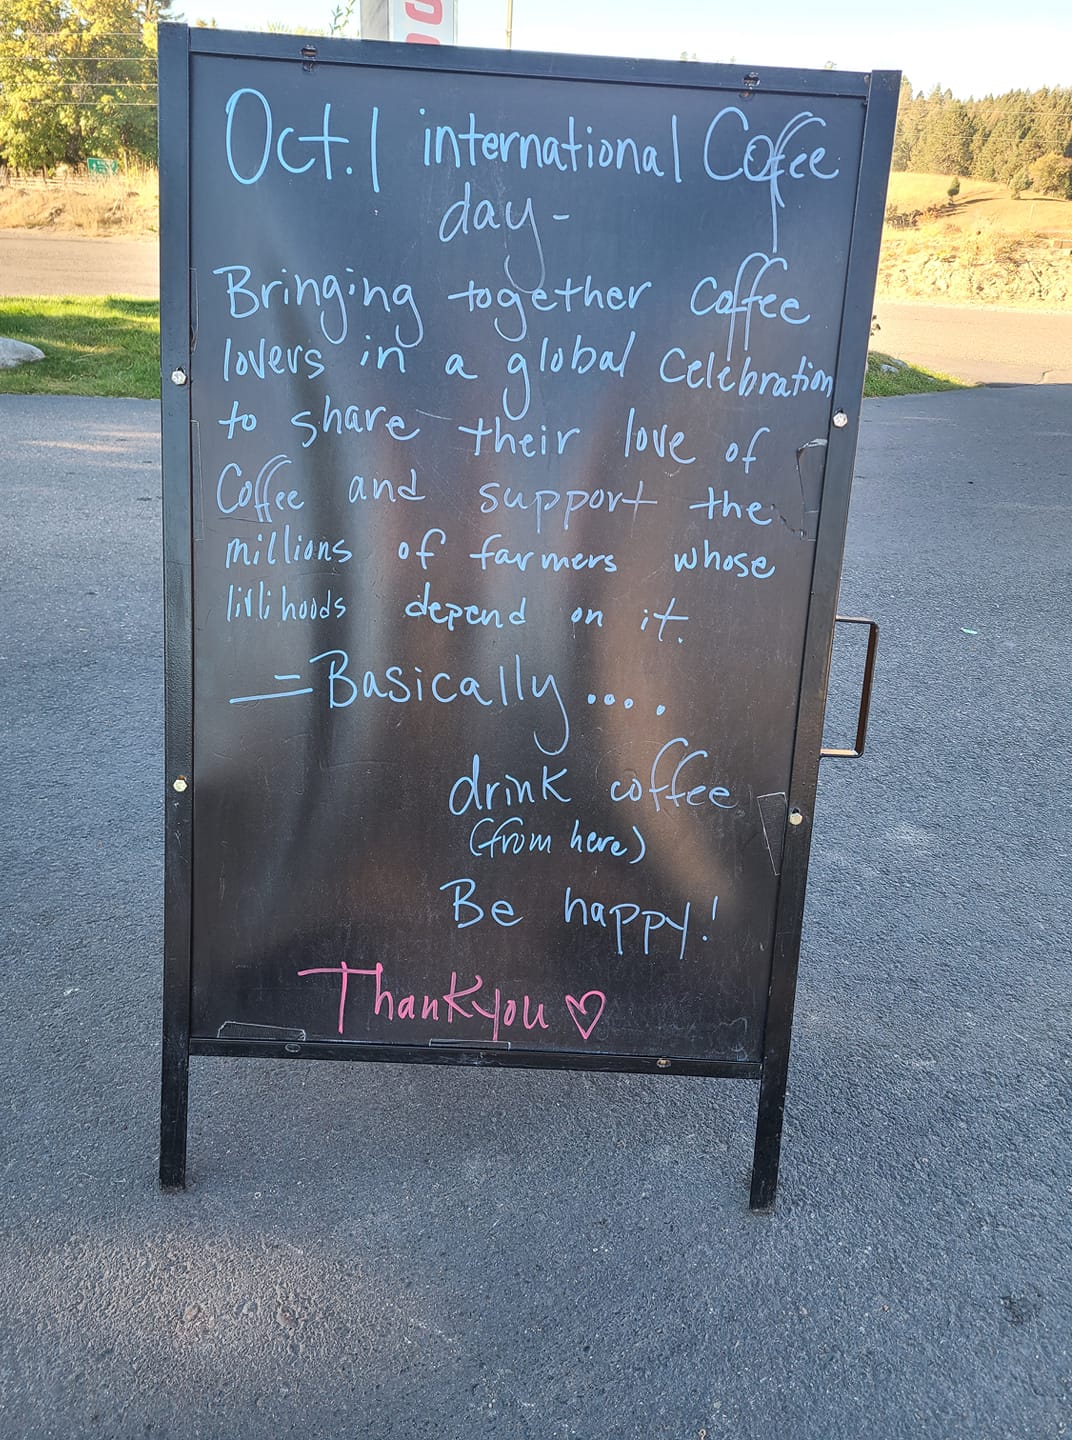 Oct. 1 international Coffee
day-
Bringing together Coffee
lovers in a global Celebration
to share their love of
Coffee and support the
millions of farmers whose
livlihoods depend on it.
= Basically ....
drink coffee
(from here)
Be happy!
Thankyou ♡